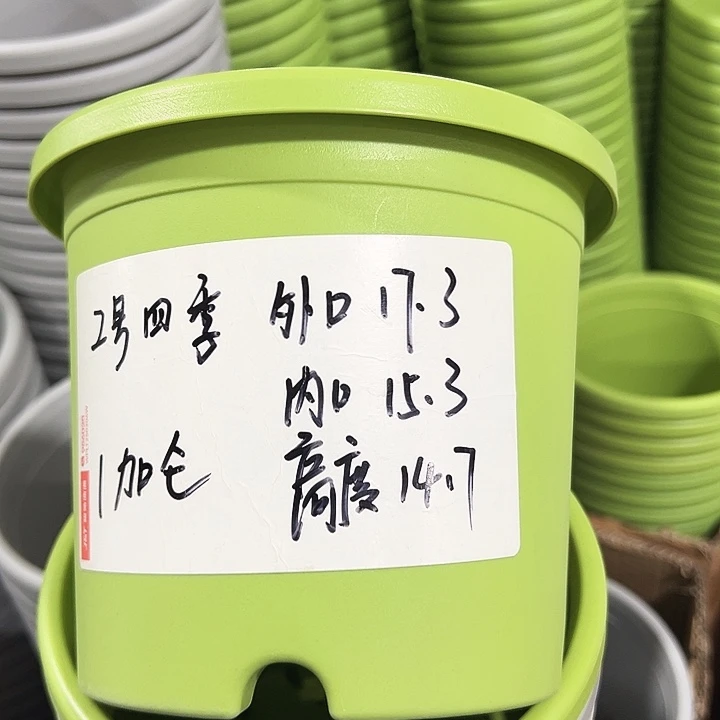 2号四季 外口 17.3
内口 15.3
1加仑 高度 14.7